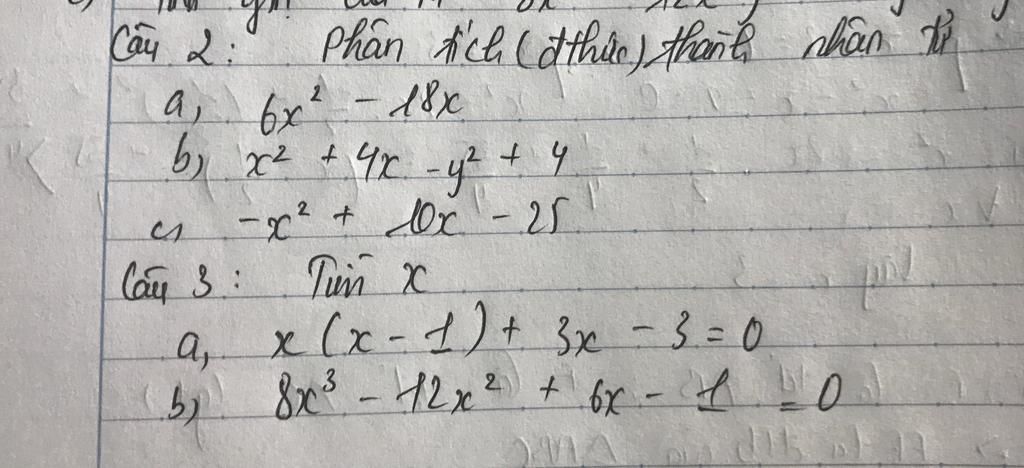 Câu 2: Phân tích (đthức) thành nhân tử
a, 6x² - 18x
b, x² + 4x - y² + 4
c, -x² + 10x - 25
Câu 3: Tìm x
a, x(x - 1) + 3x - 3 = 0
b, 8x³ - 12x² + 6x - 1 = 0